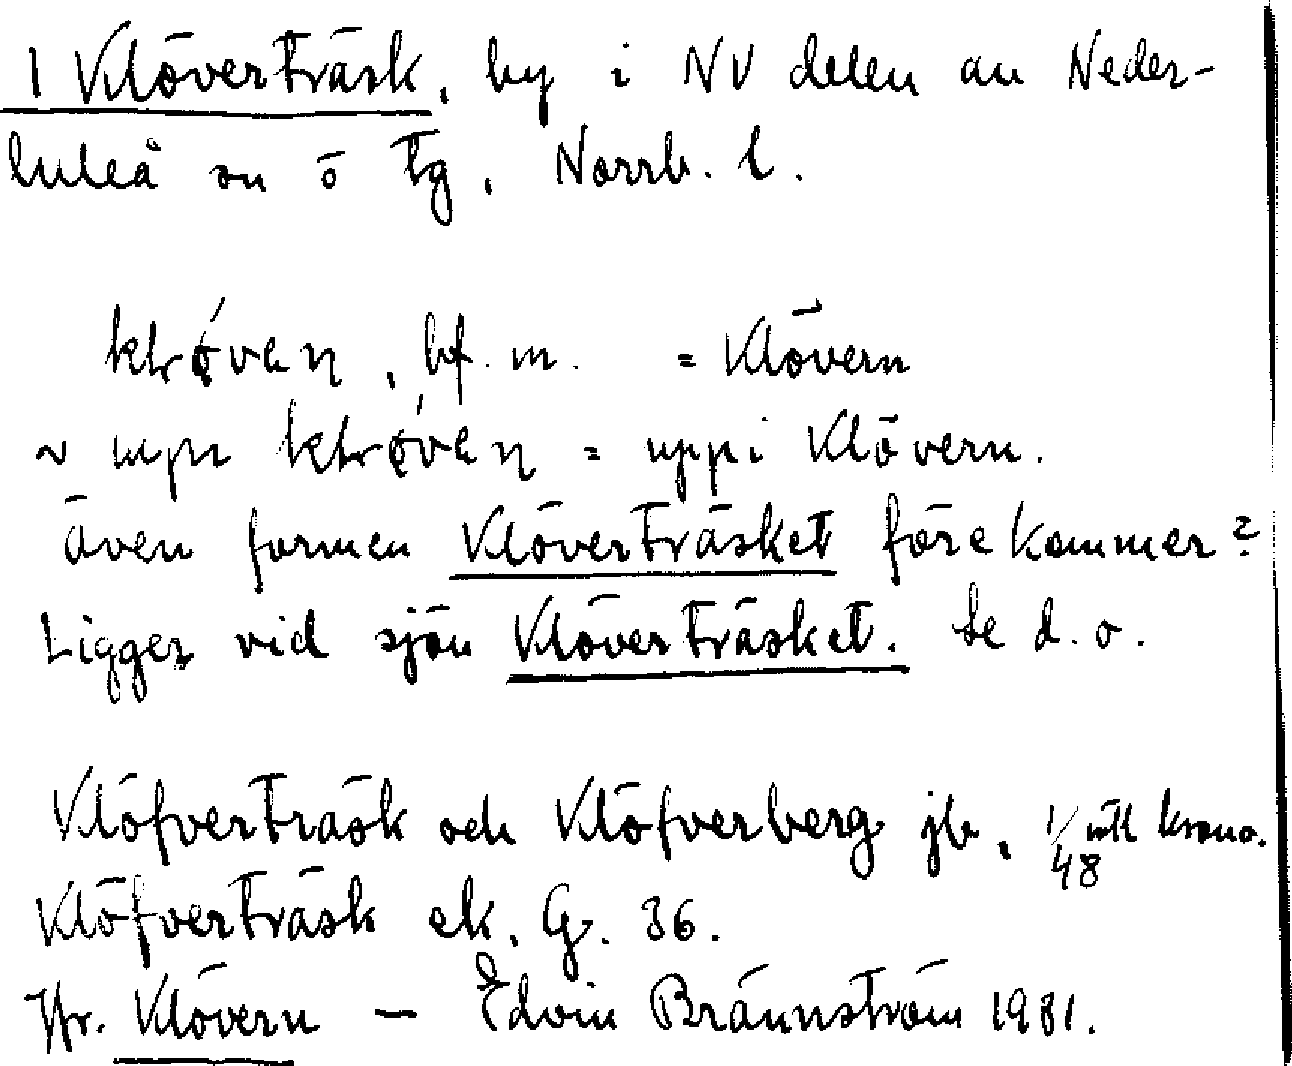 1 Klöverträsk, by i NV delen av Neder-
luleå sn o tg, Norrb. l.
klǿven, bf. m. = Klövern
~ upi klǿven = uppi Klövern.
även formen Klöverträsket förekommer?
Ligger vid sjön Klöverträsket. Se d. o.
Klöfverträsk och Klöfverberg jb, 1/48 mtl krono.
Klöfverträsk ek. G. 36.
Jfr. Klövern — Edvin Brännström 1981.